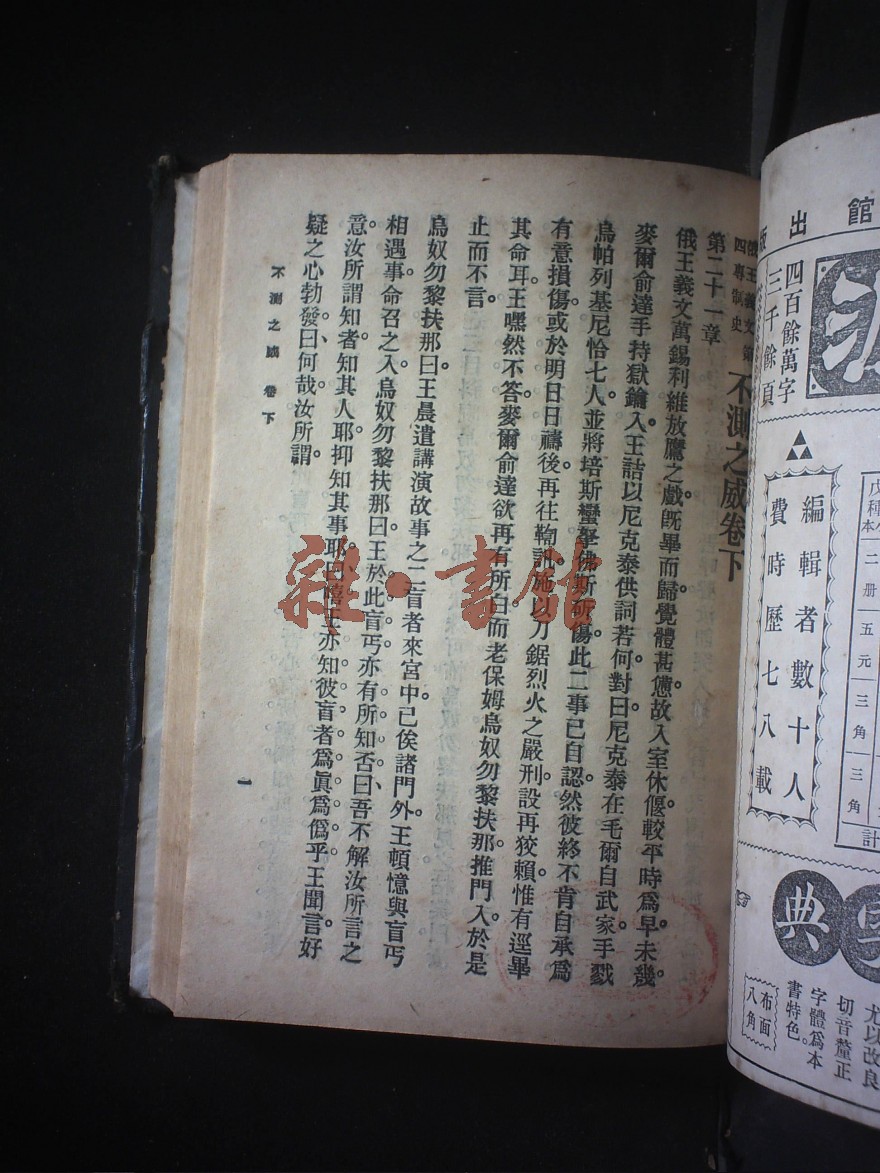 俄王義文第
四專制史
不測之威卷下
第二十一章
俄王義文萬錫利維放鷹之戲既畢而歸。覺體甚憊。故入室休偃。較平時爲早。未幾
麥爾俞達手持獄鑰入。王詰以尼克泰供詞若何。對曰。尼克泰在毛爾自武家手戮
烏帕列基尼恰七人。並將培斯蠻拏佛斯斫傷。此二事已自認。然彼終不肯自承爲
有意損傷。或於明日日禱後再往鞫訊。施以刀鋸烈火之嚴刑。設再狡賴。惟有逕畢
其命耳。王嘿然不答。麥爾俞達欲再有所白。而老保姆烏奴勿黎扶那推門入。於是
止而不言。
烏奴勿黎扶那曰。王晨遣講演故事之二盲者來宮中。已俟諸門外。王頓憶與盲丐
相遇事。命召之入。烏奴勿黎扶那曰。王於此盲丐亦有所知否。曰。吾不解汝所言之
意。汝所謂知者。知其人耶。抑知其事耶。曰。嘻。王亦知彼盲者爲眞爲僞乎。王聞言。好
疑之心勃發。曰。何哉汝所謂。
不測之威 卷下
一
雜·書館
館出版
四百餘萬字
三千餘頁
編輯者數十人
費時歷七八載
戊種
二册
五元
三角
三角
計
典
布面
八角
尤以改良
切音釐正
字體爲本
書特色。